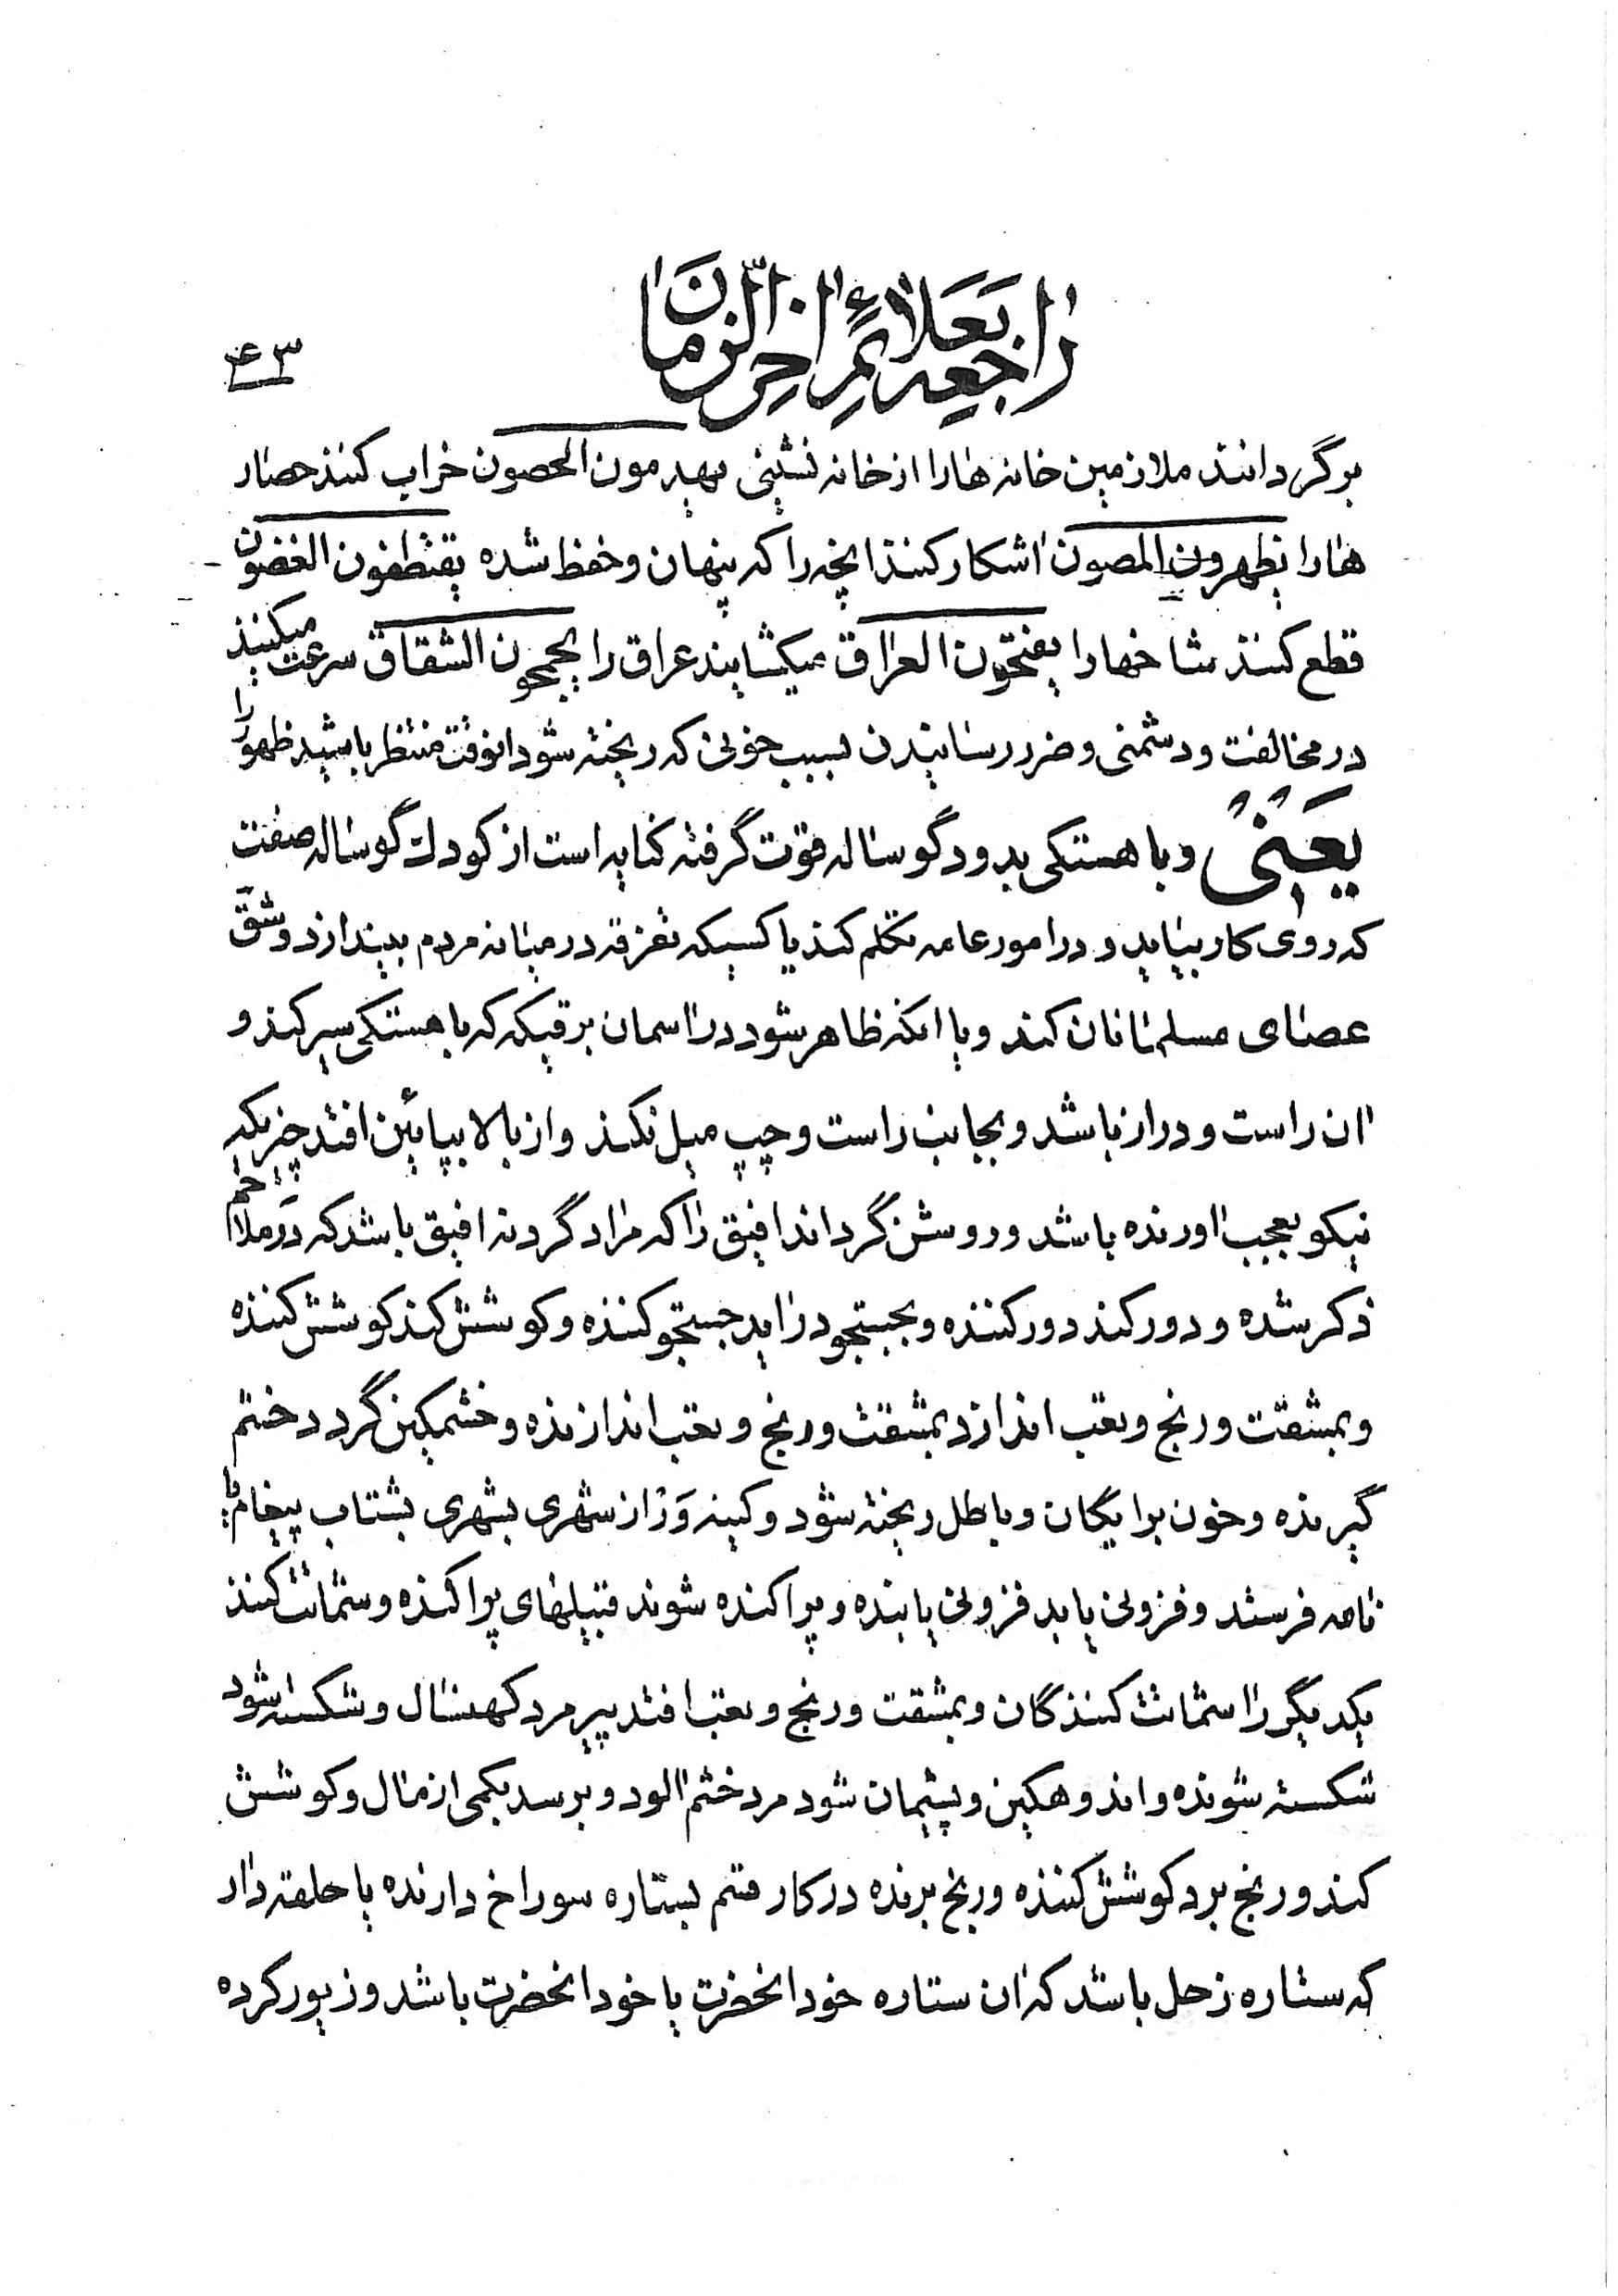 راجعه بعلائم اخر الزمان
۴۳
برگردانند ملازمین خانه ها را از خانه نشینی یهدمون الحصون خراب کنند حصار
ها را یظهرون المصون اشکار کنند انچه را که پنهان و حفظ شده یقتطفون الغضون
قطع کنند شاخها را یفتحون العراق میکشایند عراق را یجمحون الشقاق سرعت میکنند
در مخالفت و دشمنی و ضرر رسانیدن بسبب خونی که ریخته شود انوقت منتظر باشید ظهور را
یعنی و باهستکی بدود گوساله قوت گرفته کنایه است از کودک گوساله صفت
که روی کار بیاید و در امور عامه تکلم کند یا کسیکه تفرقه در میانه مردم بیندازد و شق
عصای مسلمانان کند و یا انکه ظاهر شود در اسمان برقیکه که باهستکی سیر کند و
ان راست و دراز باشد و بجانب راست و چپ میل نکند و از بالا بپائین افتد چیزیکه
نیکو بعجب اورنده باشد و روشن گرداند افیق را که مراد گردنه افیق باشد که در ملاحم
ذکر شده و دور کند دور کننده و بجستجو در اید جستجو کننده و کوشش کند کوشش کننده
و بمشقت و رنج و تعب اندازد بمشقت و رنج و تعب اندازنده و خشمکین گردد خشم
گیرنده و خون برایگان و باطل ریخته شود و کینه وَر از شهری بشهری بشتاب پیغام یا
نامه فرستد و فزونی یابد فزونی یابنده و پراکنده شوند قبیلهای پراکنده و شماتت کنند
یکدیگر را شماتت کنندگان و بمشقت و رنج و تعب افتد پیر مرد کهنسال و شکسته شود
شکسته شونده و اندوهکین و پشیمان شود مرد خشم الود و برسد بکمی از مال و کوشش
کند و رنج برد کوشش کننده و رنج برنده در کار قسم بستاره سوراخ دارنده یا حلقه دار
که ستاره زحل باشد که ان ستاره خود انحضرت یا خود انحضرت باشد و زیور کرده